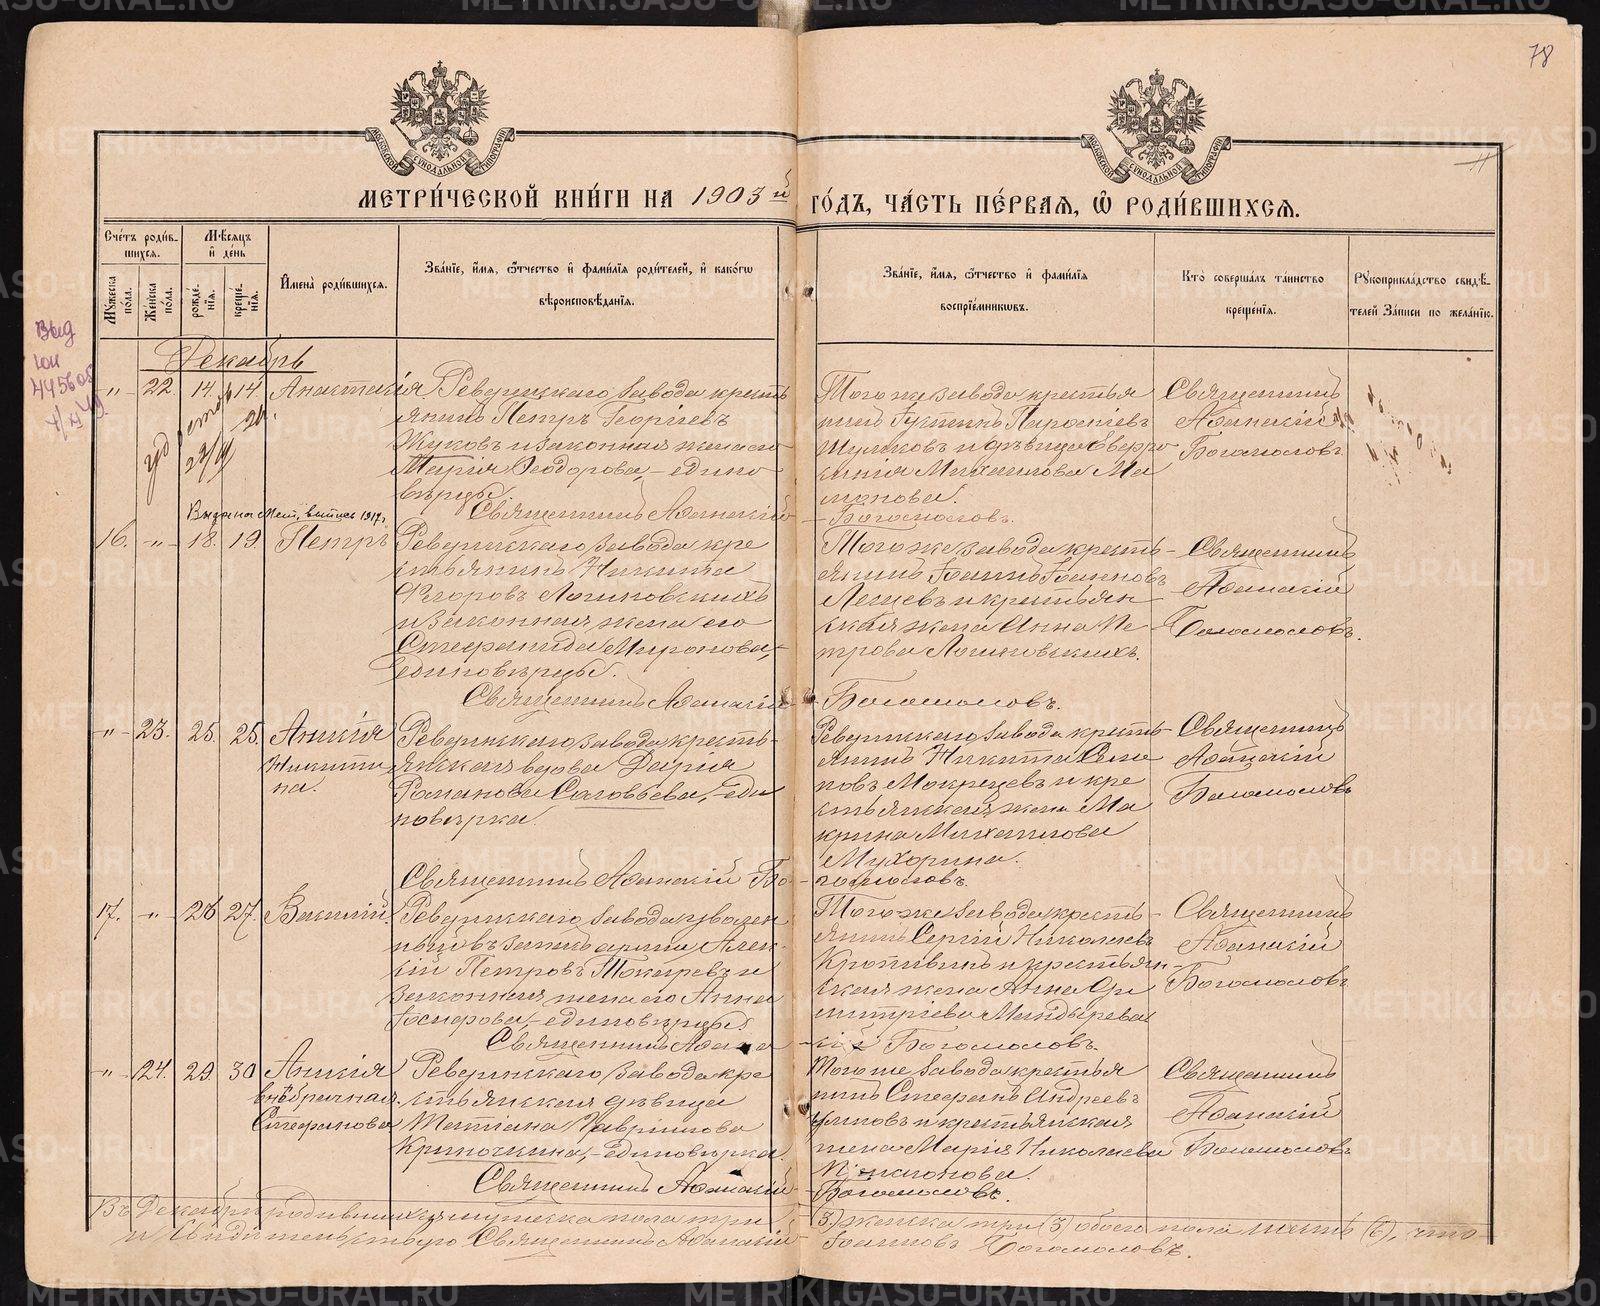 78
МЕТРИ́ЧЕСКОЙ КНИ́ГИ НА 1903й ГО́ДЪ, ЧА́СТЬ ПЕ́РВАѦ, Ѡ РОДИ́ВШИХСѦ.
Сче́тъ роди́в-
шихся.
Мѣ́сяцъ
и̂ де́нь
Му́жеска
по́ла.
Же́нска
по́ла.
рожде́-
нїя.
креще́-
нїя.
И̂мена̀ роди́вшихся.
Зва́нїе, и́мя, ѻ́тчество и̂ фами́лїя роди́телей, и̂ како́гѡ
вѣроисповѣ́данїя.
Зва́нїе, и́мя, ѻ́тчество и̂ фами́лїя
воспрїе́мникѡвъ.
Кто̀ соверша́лъ та́инство
креще́нїя.
Рꙋкоприкла́дство свидѣ́-
телей За́писи по жела́нїю.
Декабрь
" 22 14 14 Анастасія
Ревдинскаго завода кресть
янинъ Петръ Георгіевъ
Жуковъ и законная жена его
Марія Ѳеодорова, – едино
вѣрцы.
Священникъ Аѳанасій
Того же завода крестья
нинъ
Шумковъ и дѣвица Евдо
кимія Михаилова Ма
монова.
Богомоловъ.
Священникъ
Аѳанасій
Богомоловъ
Выдана Мет. выпись 1917 г.
16. " 18. 19. Петръ
Ревдинскаго завода кре
стьянинъ Никита
Ѳедоровъ Логиновскихъ
и законная жена его
Стефанида Миронова,
единовѣрцы.
Священникъ Аѳанасій
Того же завода кресть-
янинъ Іоаннъ Іоанновъ
Лещевъ и крестьян
ская жена Анна Пе
трова Логиновскихъ.
Богомоловъ.
Священникъ
Аѳанасій
Богомоловъ.
" 23. 25. 25. Анисія
Никити
на.
Ревдинскаго завода кресть-
янская вдова Дарія
Романова Соловьева, – еди
новѣрка.
Священникъ Аѳанасій Бо-
Ревдинскаго завода кресть-
янинъ Никита Семе
новъ Мокрецевъ и кре
стьянская жена Ма
крина Михаилова
Мухорина.
гомоловъ.
Священникъ
Аѳанасій
Богомоловъ
17. " 26 27. Василій.
Ревдинскаго завода уволен
ный въ запасъ арміи Алек-
сій Петровъ Токаревъ и
законная жена его Анна
единовѣрцы.
Священникъ Аѳана
Того же завода кресть-
янинъ Сергій Николаевъ
Кропивинъ и крестьян-
ская жена Анна Ди
митріева Мандырева
сій Богомоловъ.
Священникъ
Аѳанасій
Богомоловъ
" 24. 29. 30 Анисія
внѣбрачная
Стефанова
Ревдинскаго завода кре
стьянская дѣвица
Татіана Гавріилова
Криночкина, – единовѣрка.
Священникъ Аѳанасій
Того же завода крестья
нинъ Стефанъ Андреевъ
и крестьянская
жена Марія Николаева
Богомоловъ.
Священникъ
Аѳанасій
Богомоловъ
Въ Декабрѣ родившихся мужеска пола три (3.) женска три (3) обоего пола шесть (6), что
и свидѣтельствую Священникъ Аѳанасій Іоанновъ Богомоловъ.